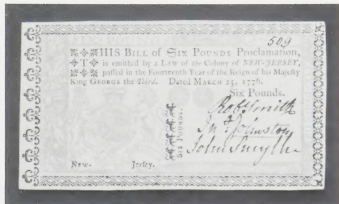 509
THIS BILL of SIX POUNDS Proclamation,
is emitted by a LAW of the Colony of NEW-JERSEY,
passed in the Fourteenth Year of the Reign of his Majesty
King GEORGE the Third. Dated MARCH 25, 1776.
Six Pounds.
SIX POUNDS.
Robt Smith
John Smyth
New- Jersey.